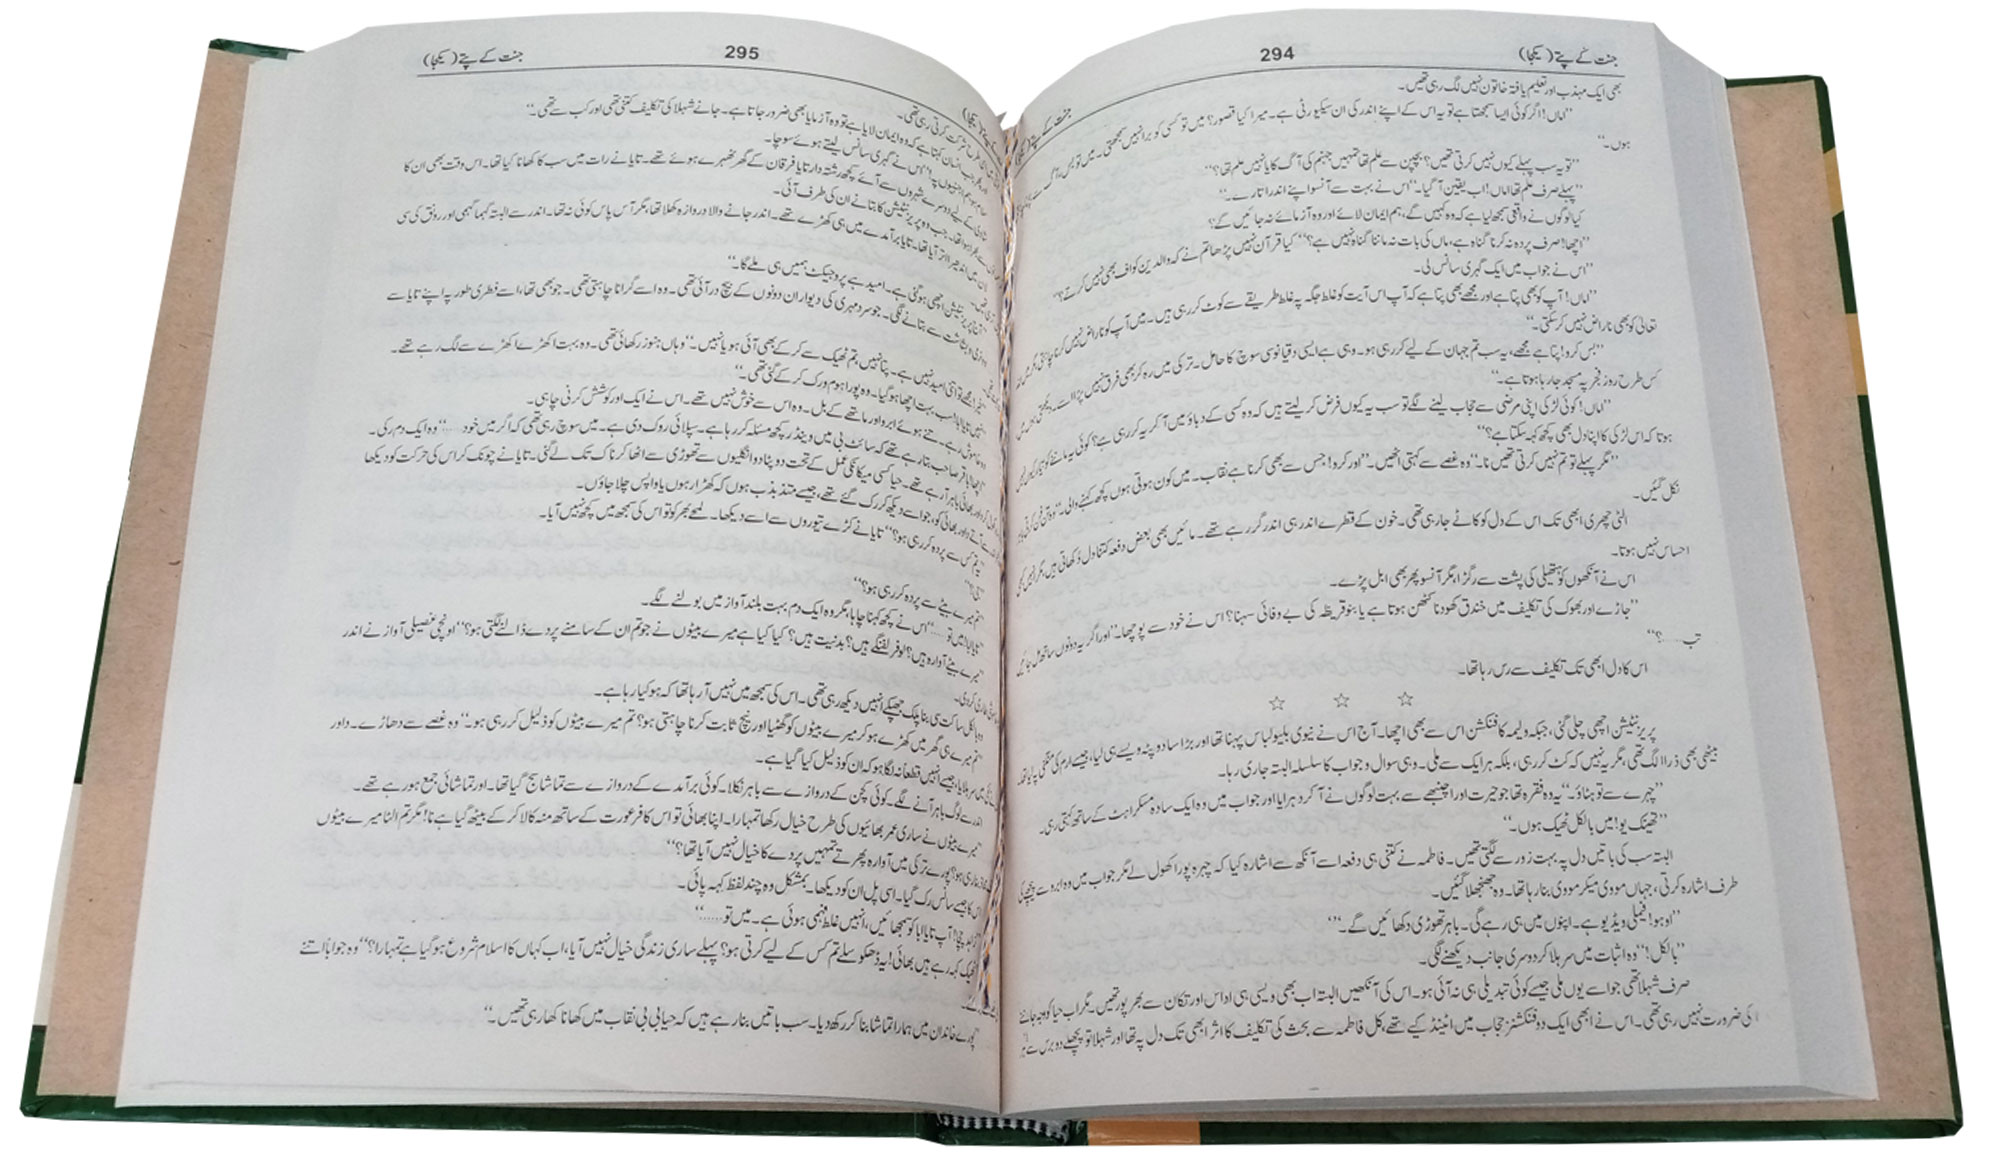 جنت کے پتے (یکجا) 294
بھی ایک مہذب اور تعلیم یافتہ خاتون نہیں لگ رہی تھیں۔
”اماں! اگر کوئی ایسا سمجھتا ہے تو یہ اس کے اپنے اندر کی ان سیکیورٹی ہے۔ میرا کیا قصور؟ میں تو کسی کو برا نہیں سمجھتی۔ میں تو بس، آگ سے
ہوں۔“
”تو یہ سب پہلے کیوں نہیں کرتی تھیں؟ بچپن سے علم تھا تمہیں جہنم کی آگ کا یا نہیں علم تھا؟“
”پہلے صرف علم تھا اماں! اب یقین آ گیا۔“ اس نے بہت سے آنسو اپنے اندر اتارے۔
کیا لوگوں نے واقعی سمجھ لیا ہے کہ وہ کہیں گے، ہم ایمان لائے اور وہ آزمائے نہ جائیں گے؟
”اچھا! صرف پردہ نہ کرنا گناہ ہے، ماں کی بات نہ ماننا گناہ نہیں ہے؟“ کیا قرآن نہیں پڑھا تم نے کہ والدین کو اف بھی نہیں کرتے؟“
”اس نے جواب میں ایک گہری سانس لی۔
”اماں! آپ کو بھی پتا ہے اور مجھے بھی پتا ہے کہ آپ اس آیت کو غلط جگہ پہ غلط طریقے سے کوٹ کر رہی ہیں۔ میں آپ کو ناراض نہیں کرنا چاہتی، مگر میں اللہ
تعالیٰ کو بھی ناراض نہیں کر سکتی۔“
”بس کرو! پتا ہے مجھے، یہ سب تم جہان کے لیے کر رہی ہو۔ وہی ہے ایسی دقیانوسی سوچ کا حامل۔ ترکی میں رہ کر بھی فرق نہیں پڑا اسے۔ دیکھتی
کس طرح روز فجر پہ مسجد جا رہا ہوتا ہے۔“
”اماں! کوئی لڑکی اپنی مرضی سے حجاب لینے لگے تو سب یہ کیوں فرض کر لیتے ہیں کہ وہ کسی کے دباؤ میں آ کر یہ کر رہی ہے؟ کوئی یہ ماننے کو تیار کیوں نہیں
ہوتا کہ اس لڑکی کا اپنا دل بھی کچھ کہہ سکتا ہے؟“
”مگر پہلے تو تم نہیں کرتی تھیں نا۔“ وہ غصے سے کہتی اٹھیں۔ ”اور کرو! جس سے بھی کرنا ہے نقاب۔ میں کون ہوتی ہوں کچھ کہنے والی۔“ وہ تن فن کرتی باہر
نکل گئیں۔
الٹی چھری ابھی تک اس کے دل کو کاٹے جا رہی تھی۔ خون کے قطرے اندر ہی اندر گر رہے تھے۔ مائیں بھی بعض دفعہ کتنا دل دکھاتی ہیں، مگر انہیں
احساس نہیں ہوتا۔
اس نے آنکھوں کو ہتھیلی کی پشت سے رگڑا، مگر آنسو پھر بھی ابل پڑے۔
”جاڑے اور بھوک کی تکلیف میں خندق کھودنا کٹھن ہوتا ہے یا بنو قریظہ کی بے وفائی سہنا؟ اس نے خود سے پوچھا۔“ اور اگر یہ دونوں ساتھ مل
تب.....؟“
اس کا دل ابھی تک تکلیف سے رس رہا تھا۔
☆ ☆ ☆
پریزنٹیشن اچھی چلی گئی، جبکہ ولیمہ کا فنکشن اس سے بھی اچھا۔ آج اس نے نیوی بلیو لباس پہنا تھا اور بڑا سا دوپٹہ ویسے ہی لیا، جیسے ارم کی منگنی پہ لیا تھا۔
بیٹھی بھی ذرا الگ تھی، مگر یہ نہیں کہ کٹ کر رہی، بلکہ ہر ایک سے ملی۔ وہی سوال و جواب کا سلسلہ البتہ جاری رہا۔
”چہرے سے تو ہٹاؤ۔“ یہ وہ فقرہ تھا جو حیرت اور اچنبھے سے بہت لوگوں نے آ کر دہرایا اور جواب میں وہ ایک سادہ مسکراہٹ کے ساتھ کہتی رہی۔
”تھینک یو! میں بالکل ٹھیک ہوں۔“
البتہ سب کی باتیں دل پہ بہت زور سے لگتی تھیں۔ فاطمہ نے کتنی ہی دفعہ اسے آنکھ سے اشارہ کیا کہ چہرہ پورا کھول لے مگر جواب میں وہ ابرو سے پیچھے کی
طرف اشارہ کرتی، جہاں مووی میکر مووی بنا رہا تھا۔ وہ جھنجھلا گئیں۔
”اوہو! فیملی ویڈیو ہے۔ اپنوں میں ہی رہے گی۔ باہر تھوڑی دکھائیں گے۔“
”بالکل!“ وہ اثبات میں سر ہلا کر دوسری جانب دیکھنے لگی۔
صرف شہلا تھی جو اسے یوں ملی جیسے کوئی تبدیلی ہی نہ آئی ہو۔ اس کی آنکھیں البتہ اب بھی ویسی ہی اداس اور تکان سے بھرپور تھیں۔ مگر اب حیا کو وجہ جاننے
کی ضرورت نہیں رہی تھی۔ اس نے ابھی ایک دو فنکشنز حجاب میں اٹینڈ کیے تھے، کل فاطمہ سے بحث کی تکلیف کا اثر ابھی تک دل پہ تھا اور شہلا تو پچھلے دو برس سے
جنت کے پتے (یکجا) 295
طرح شرکت کرتی رہی تھی۔
جب انسان کہتا ہے کہ وہ ایمان لایا ہے تو وہ آزمایا بھی ضرور جاتا ہے۔ جانے شہلا کی تکلیف کتنی تھی اور کب سے تھی۔“
اس نے گہری سانس لیتے ہوئے سوچا۔
شادی کے لیے دوسرے شہروں سے آئے کچھ رشتہ دار تایا فرقان کے گھر ٹھہرے ہوئے تھے۔ تایا نے رات میں سب کا کھانا کیا تھا۔ اس وقت بھی ان کا
جب وہ پریزنٹیشن کا بتانے ان کی طرف آئی۔
میں اندھیرا اتر آیا تھا۔ تایا برآمدے میں ہی کھڑے تھے۔ اندر جانے والا دروازہ کھلا تھا، مگر آس پاس کوئی نہ تھا۔ اندر سے البتہ گہما گہمی اور رونق کی سی
پریزنٹیشن اچھی ہو گئی ہے۔ امید ہے پروجیکٹ ہمیں ہی ملے گا۔“
بشاشت سے بتانے لگی۔ جو سرد مہری کی دیوار ان دونوں کے بیچ در آئی تھی۔ وہ اسے گرانا چاہتی تھی۔ جو بھی تھا، اسے فطری طور پہ اپنے تایا سے
مجھے تو اتنی امید نہیں ہے۔ پتا نہیں، تم ٹھیک سے کر کے بھی آئی ہو یا نہیں۔“ وہاں ہنوز رکھائی تھی۔ وہ بہت اکھڑے اکھڑے سے لگ رہے تھے۔
”نہیں تایا ابا! سب بہت اچھا ہو گیا۔ وہ پورا ہوم ورک کر کے گئی تھی۔“
وہ خاموش رہے۔ تنے ہوئے ابرو اور ماتھے کے بل۔ وہ اس سے خوش نہیں تھے۔ اس نے ایک اور کوشش کرنی چاہی۔
”اچھا باقر صاحب بتا رہے تھے کہ سائٹ بی میں وینڈر کچھ مسئلہ کر رہا ہے۔ سپلائی روک دی ہے۔ میں سوچ رہی تھی کہ اگر میں خود.....“ وہ ایک دم رکی۔
بھائی باہر آ رہے تھے۔ حیا کسی میکانکی عمل کے تحت دوپٹا دو انگلیوں سے تھوڑی سے اٹھا کر ناک تک لے گئی۔ تایا نے چونک کر اس کی حرکت کو دیکھا
سے آتے داور بھائی کو، جو اسے دیکھ کر رک گئے تھے، جیسے متذبذب ہوں کہ کھڑا رہوں یا واپس چلا جاؤں۔
”تم کس سے پردہ کر رہی ہو؟“ تایا نے کڑے تیوروں سے اسے دیکھا۔ لمحے بھر کو تو اس کی سمجھ میں کچھ نہیں آیا۔
”جی؟“
”تم میرے بیٹے سے پردہ کر رہی ہو؟“
”تایا ابا! میں تو.....“ اس نے کچھ کہنا چاہا، مگر وہ ایک دم بہت بلند آواز میں بولنے لگے۔
”میرے بیٹے آوارہ ہیں؟ لوفر لفنگے ہیں؟ بدنیت ہیں؟ کیا کیا ہے میرے بیٹوں نے جو تم ان کے سامنے پردے ڈالنے لگتی ہو؟“ اونچی غصیلی آواز نے اندر
طاری کر دی۔
وہ بالکل ساکت سی بنا پلک جھپکے انہیں دیکھ رہی تھی۔ اس کی سمجھ میں نہیں آ رہا تھا کہ ہو کیا رہا ہے۔
”تم میرے ہی گھر میں کھڑے ہو کر میرے بیٹوں کو گھٹیا اور نیچ ثابت کرنا چاہتی ہو؟ تم میرے بیٹوں کو ذلیل کر رہی ہو۔“ وہ غصے سے دھاڑے۔ داور
سر ہلایا، جیسے انہیں قطعاً نہ لگا ہو کہ ان کو ذلیل کیا گیا ہے۔
اندر سے لوگ باہر آنے لگے۔ کوئی کچن کے دروازے سے باہر نکلا۔ کوئی برآمدے کے دروازے سے تماشا سج گیا تھا۔ اور تماشائی جمع ہو رہے تھے۔
”میرے بیٹوں نے ساری عمر بھائیوں کی طرح خیال رکھا تمہارا۔ اپنا بھائی تو اس کافر عورت کے ساتھ منہ کالا کر کے بیٹھ گیا ہے نا! مگر تم الٹا میرے بیٹوں
ہو؟ پورے ترکی میں آوارہ پھرتے تمہیں پردے کا خیال نہیں آیا تھا؟“
اس کا جیسے سانس رک گیا۔ اسی پل ان کو دیکھا۔ بمشکل وہ چند لفظ کہہ پائی۔
آپ تایا ابا کو سمجھائیں، انہیں غلط فہمی ہوئی ہے۔ میں تو......“
”ٹھیک کہہ رہے ہیں بھائی! یہ ڈھکوسلے تم کس کے لیے کرتی ہو؟ پہلے ساری زندگی خیال نہیں آیا، اب کہاں کا اسلام شروع ہو گیا ہے تمہارا؟“ وہ جواباً اتنے
”پورے خاندان میں ہمارا تماشا بنا کر رکھ دیا۔ سب باتیں بنا رہے ہیں کہ حیا بی بی نقاب میں کھانا کھا رہی تھیں۔“